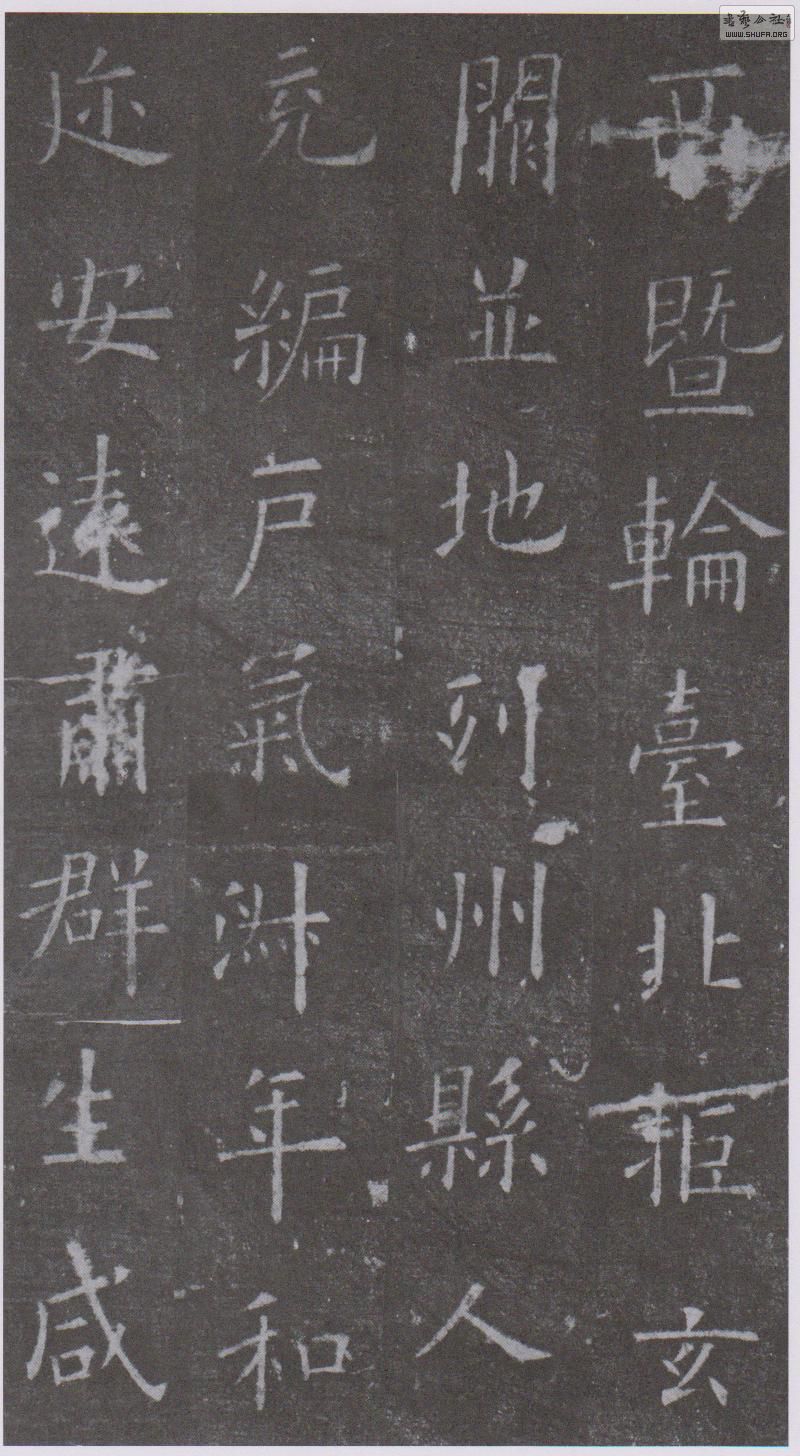 西暨輪臺北拒玄
闕並地列州縣人
充編戶氣淑年和
迩安遠肅群生咸
WWW.SHUFA.ORG